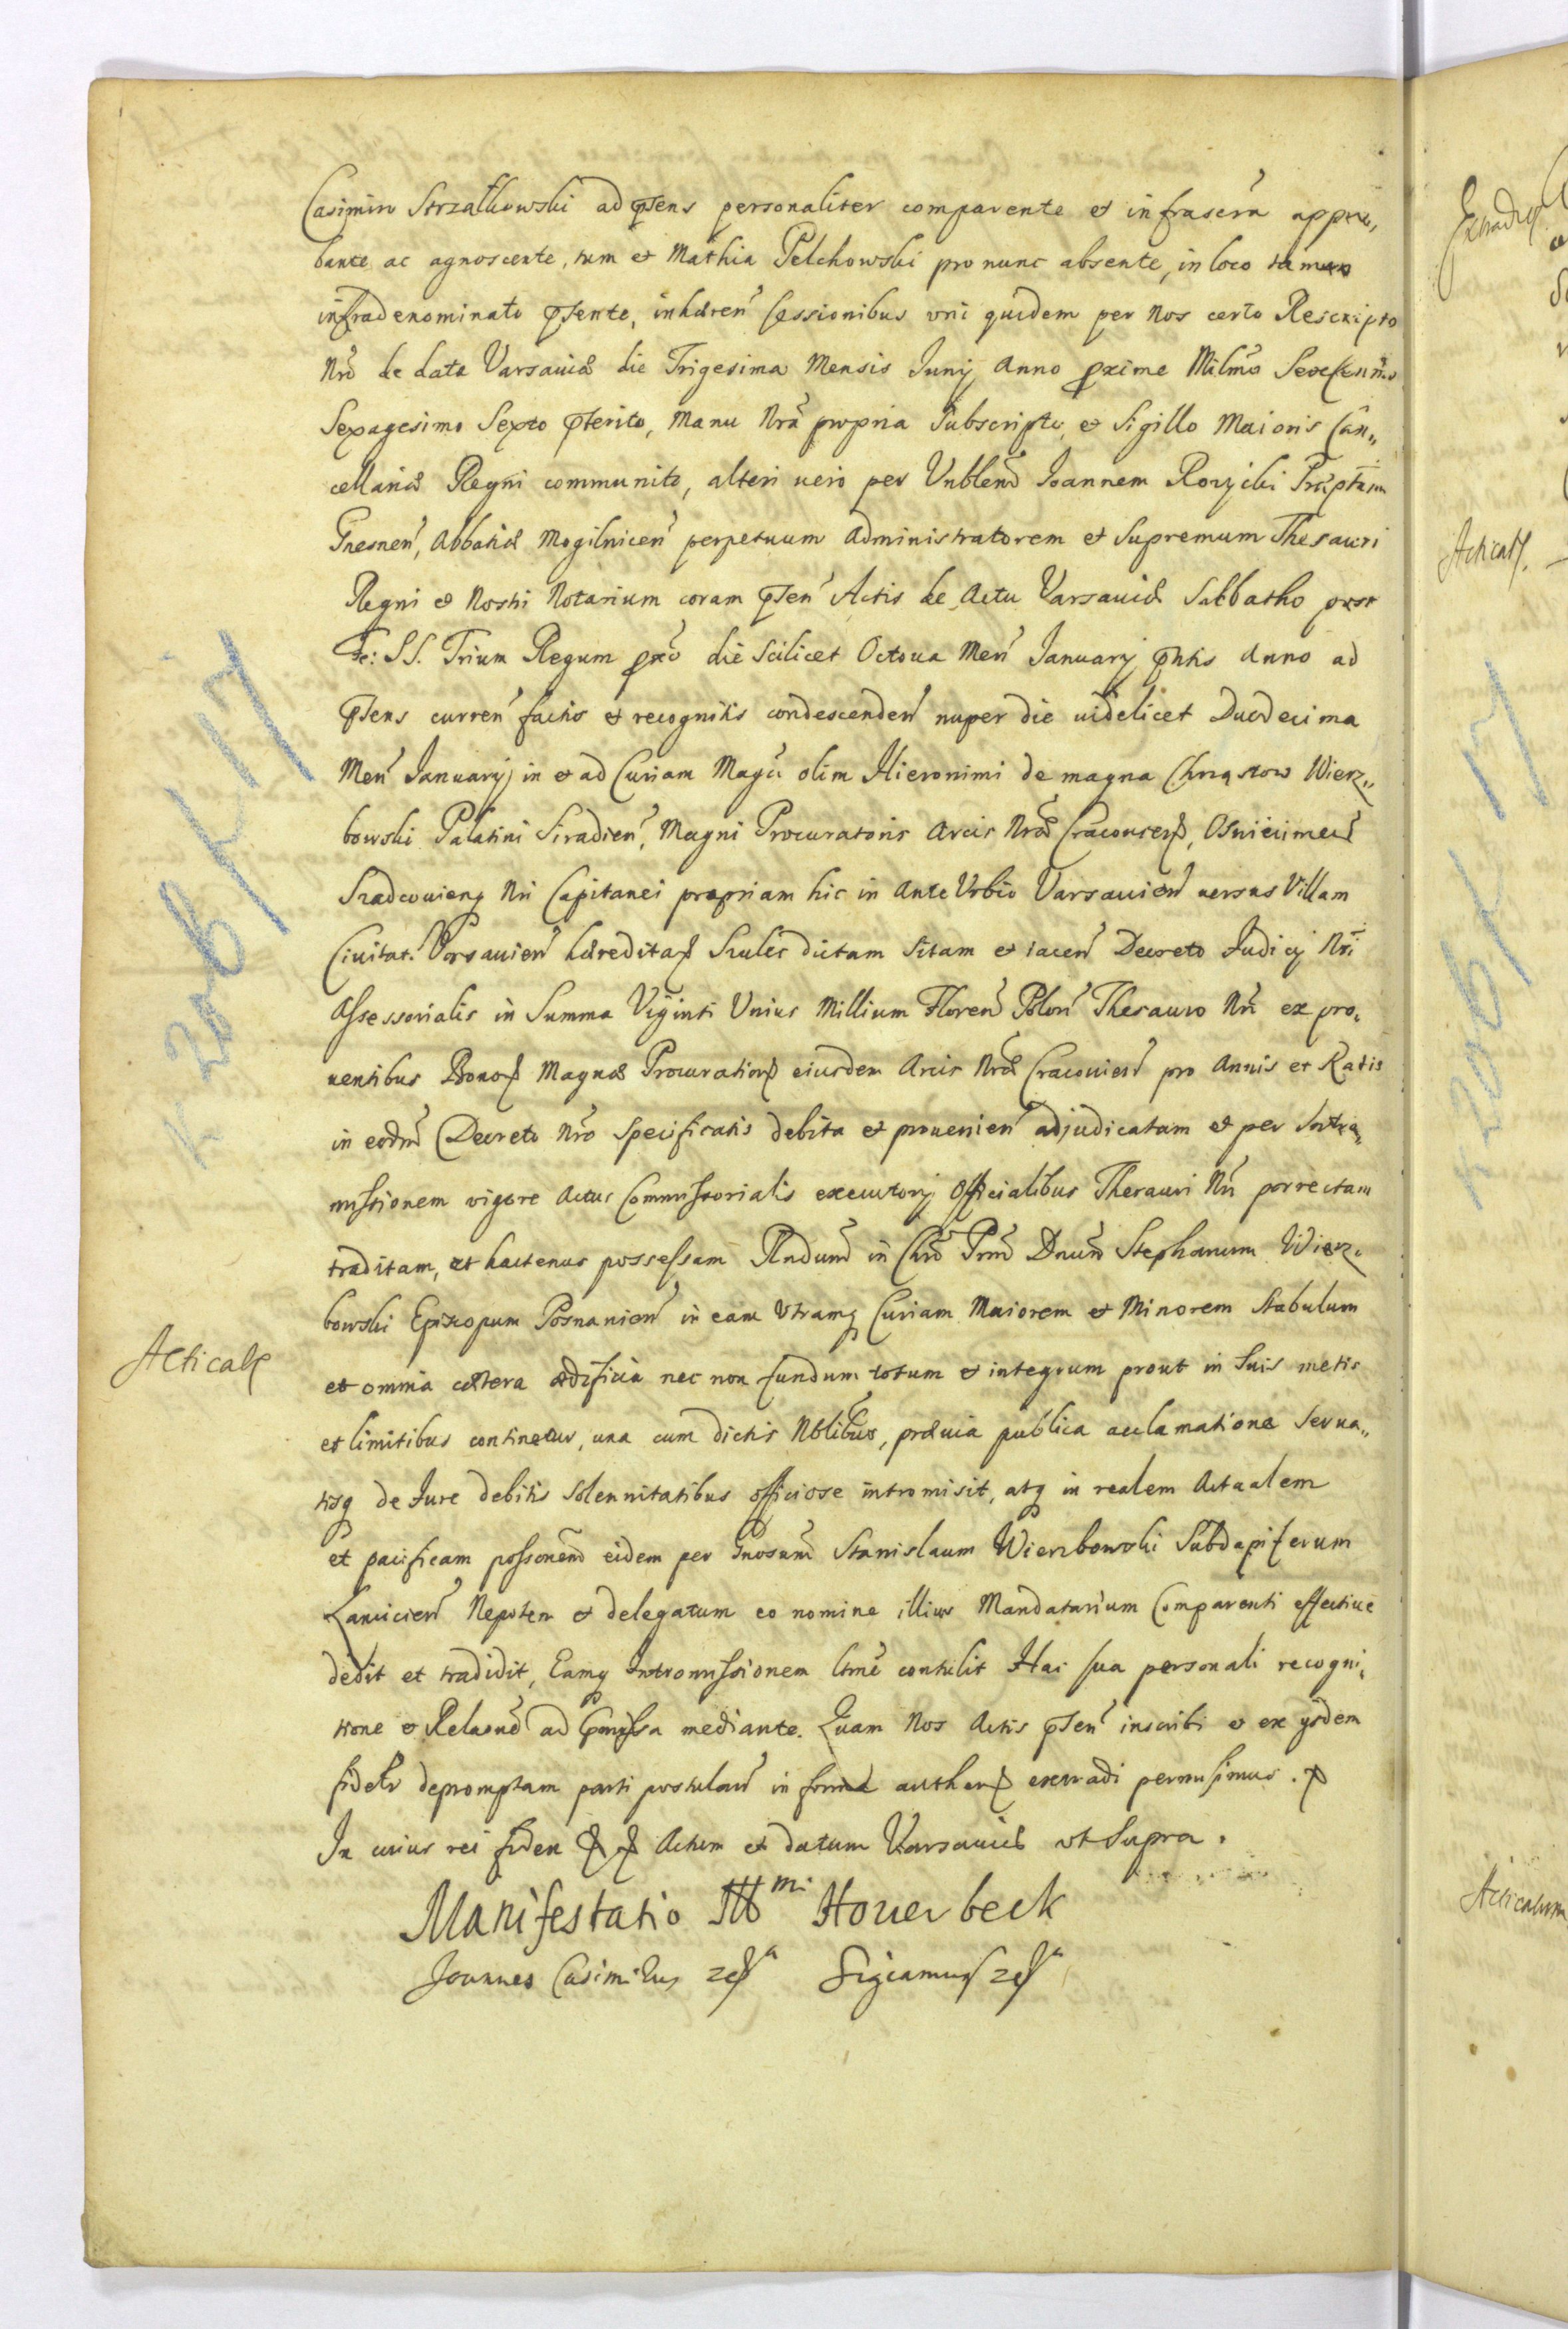 Casimiro Strzałkowski ad pñsens personaliter comparente et infrascrã appro„
bante ac agnoscente, tum et Mathia Pelchowski pro nunc absente, in loco tamen
infradenominato pñsente, inhæren̄ cessionibus vni quidem per Nos certo Rescripto
Nrõ de data Varsauiæ die Trigesima Mensis Iunij Anno proxime Millmõ Sexcentmõ
Sexagesimo Sexto pñterito, Manu Nrã propria Subscripto et Sigillo Maioris Can„
cellariæ Regni communito, alteri uero per Vnblem̃ Ioannem Rozycki Præptum
Gnesnen̄, Abbatiæ Mogilnicen̄ perpetuum Administratorem et Supremum Thesauri
Regni et Nostri Notarium coram pñsen̄ Actis de Actu Varsauiæ Sabbatho post
Fe: SS. Trium Regum proxõ die Scilicet Octoua Men̄ January pñtis Anno ad
pñsens curren̄ factis et recognitis condescenden̄ nuper die uidelicet Duodecima
Men̄ Ianuarij in et ad Curiam Magci olim Hieronimi de magna Chrząstow Wierz„
bowski Palatini Siradien̄, Magni Procuratoris Arcis Nræ Cracouien̄, Osviecimen̄
Szadcouienq Nri Capitanei propriam hic in Ante Vrbio Varsauien̄ uersus Villam
Ciuitat. Varsauien̄ hæreditar̃ Szulec dictam Sitam et iacen̄ Decreto Iudicij Nri
Assessorialis in Summa Viginti Vnius Millium Floren̄ Polon̄ Thesauro Nrõ ex pro„
uentibus Bonor̃ Magnæ Procurationis eiusdem Arcis Nræ Cracouien̄ pro Annis et Ratis
in eodm̃ Decreto Nrõ Specificatis debita et prouenien̄ adjudicatam et per Intro„
missionem vigore Actus Commissorialis executorij Officialibus Thesauri Nri porrectam
traditam, et hactenus possessam Rndum̃ in Chrõ Prm̃ Dnum̃ Stephanum Wierz„
bowski Episcopum Posnanien̄ in eam Vtramq Curiam Maiorem et Minorem Stabulum
et omnia cætera ædificia nec non fundum totum et integrum prout in Suis metis
et limitibus continetur, una cum dictis Nblibus, præuia publica acclamatione serua„
tisq de Iure debitis Solennitatibus officiose intromisit, atq in realem Actualem
et pacificam possonem̃ eidem per Gnosum̃ Stanislaum Wierzbowski Subdapiferum
Lancicien̄ Nepotem et delegatum eo nomine illius Mandatarium Comparenti effectiue
dedit et tradidit, Eamq Intromissionem ltmẽ contulit Hac sua personali recogni„
tione et Relaonẽ ad Pmissa mediante. Quam Nos Actis pñsen̄ inscribi et ex ijsdem
fidelr depromptam parti postulan̄ in forma authen̄ extradi permisimus.
In cuius rei fidem Actum et datum Varsauiæ vt Supra.
Manifestatio Illmi Houerbeck
Joannes Casimirus
Acticat
K 206 K 17